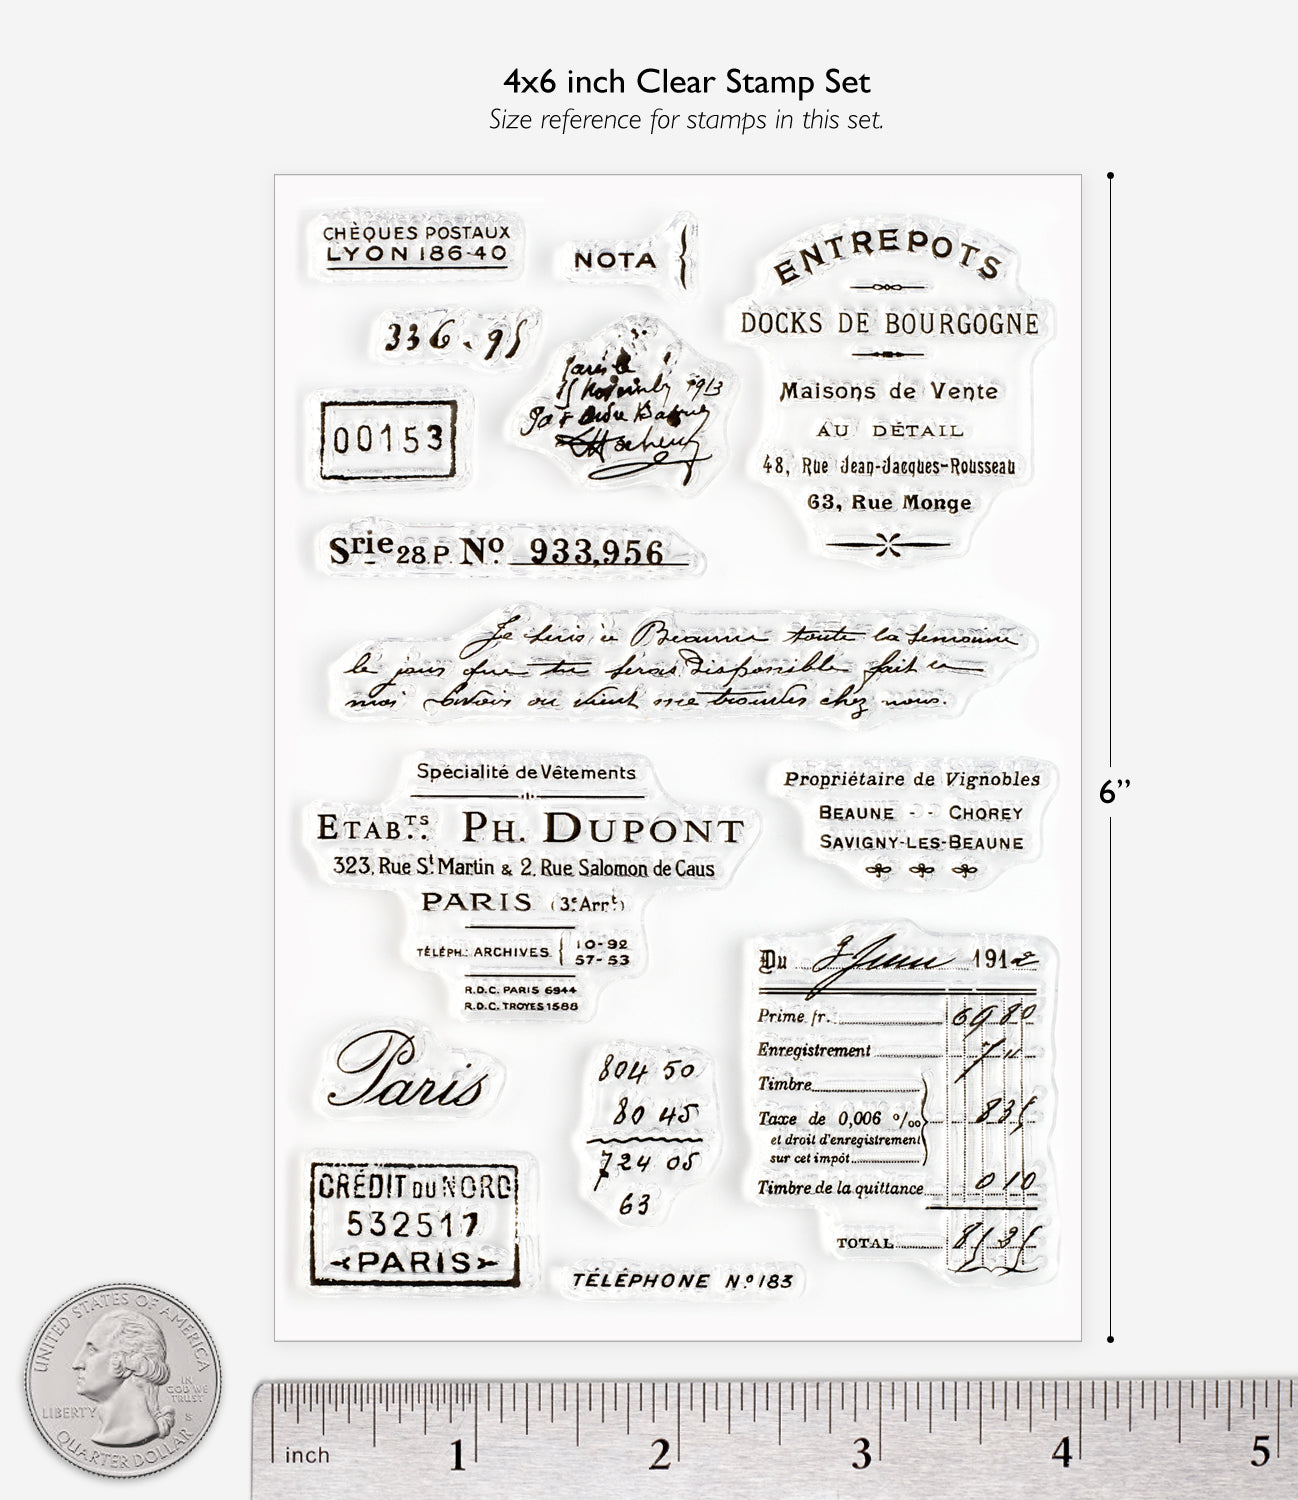 4x6 inch Clear Stamp Set
Size reference for stamps in this set.
CHÈQUES POSTAUX
LYON 186-40
NOTA
ENTREPOTS
DOCKS DE BOURGOGNE
Maisons de Vente
AU DÉTAIL
48, Rue Jean-Jacques-Rousseau
63, Rue Monge
336.95
1913
00153
Srie 28 P. No 933,956
Je suis à Beaune toute la semaine
le jour que tu seras Disponible fait le
moi savoir ou vient me trouver chez nous.
Spécialité de Vêtements
ETABTS. PH. DUPONT
323, Rue St Martin & 2, Rue Salomon de Caus
PARIS (3e Arrt)
TÉLÉPH.: ARCHIVES { 10-92
57-53
R.D.C. PARIS 6944
R.D.C. TROYES 1588
Propriétaire de Vignobles
BEAUNE - - CHOREY
SAVIGNY-LES-BEAUNE
6”
Du 3 Juin 1912
Prime fr. 69 80
Enregistrement 7 "
Timbre
Taxe de 0,006 o/oo 835
et droit d'enregistrement
sur cet impôt
Timbre de la quittance 0 10
TOTAL
Paris
804 50
80 45
724 05
63
CRÉDIT DU NORD
532517
PARIS
TÉLÉPHONE No 183
UNITED STATES OF AMERICA
IN
GOD WE
TRUST
LIBERTY
S
QUARTER DOLLAR
inch 1 2 3 4 5